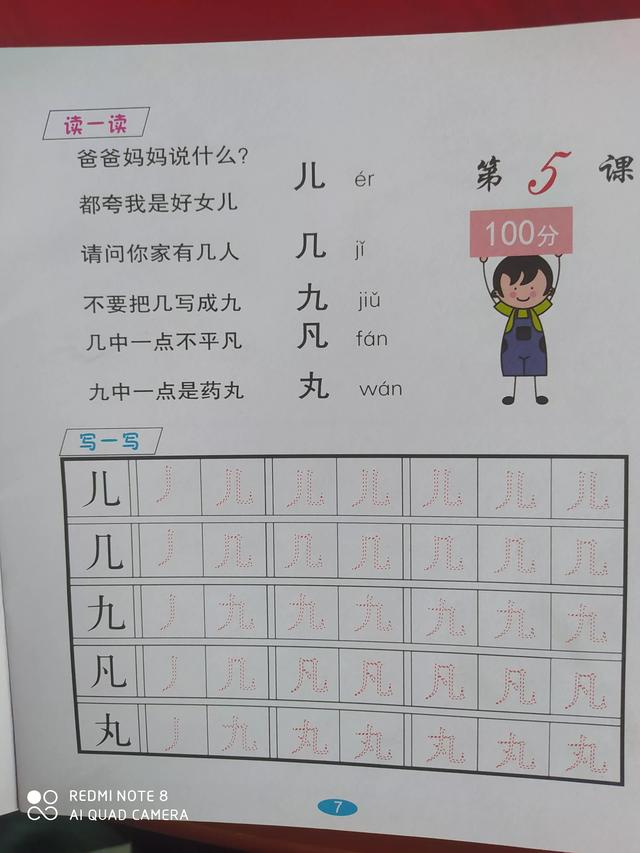 读一读
第5课
100分
爸爸妈妈说什么?
都夸我是好女儿 儿 ér
请问你家有几人 几 jǐ
不要把几写成九 九 jiǔ
几中一点不平凡 凡 fán
九中一点是药丸 丸 wán
写一写
儿 丿 儿 儿 儿 儿 儿 儿
几 丿 几 几 几 几 几 几
九 丿 九 九 九 九 九 九
凡 丿 几 凡 凡 凡 凡 凡
丸 丿 九 丸 丸 丸 丸 丸
7
REDMI NOTE 8
AI QUAD CAMERA